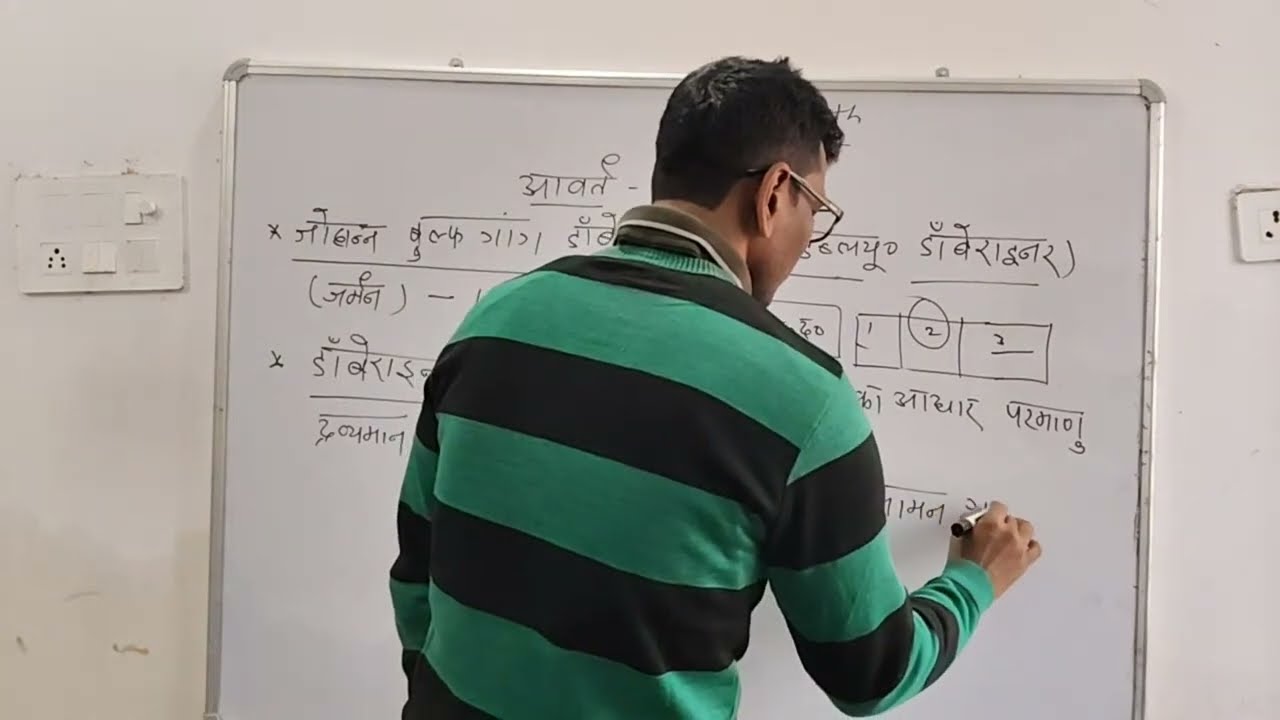 th
आवर्त -
* जोहान्न वुल्फ गांग डॉबे डब्लयू० डॉबेराइनर)
(जर्मन) - 1 1 2 3
* डॉबेराइन का आधार परमाणु
द्रव्यमान